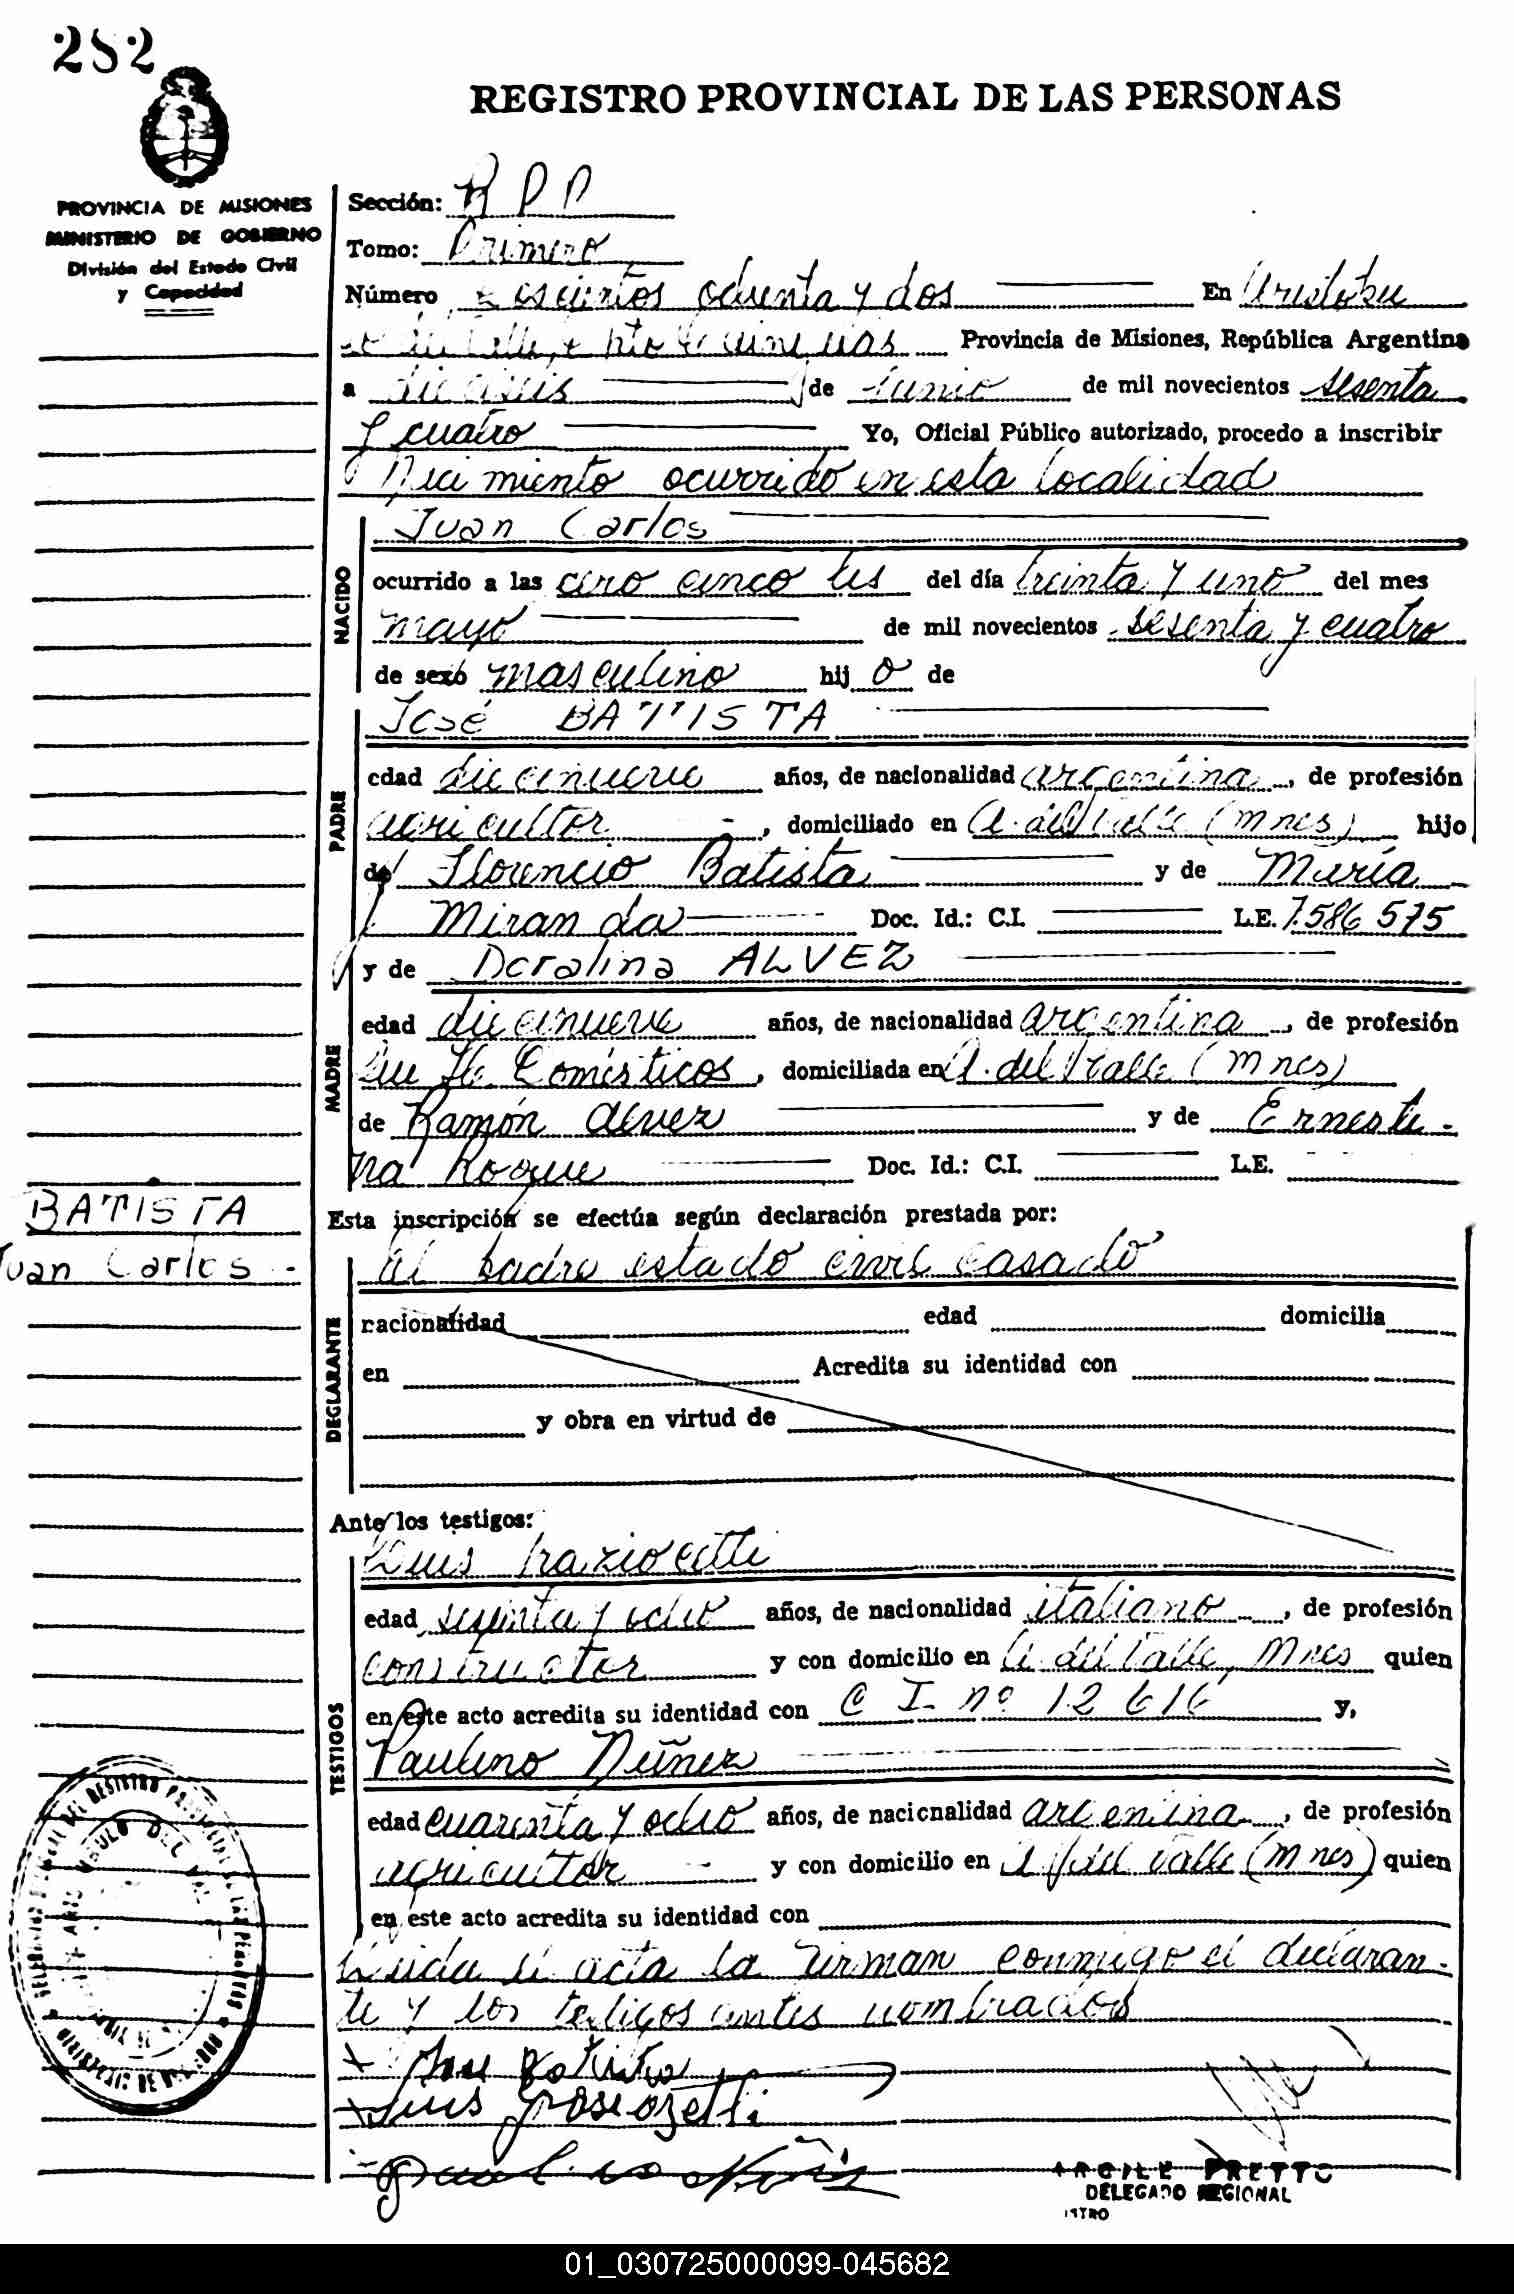 282
REGISTRO PROVINCIAL DE LAS PERSONAS
PROVINCIA DE MISIONES
MINISTERIO DE GOBIERNO
División del Estado Civil
y Capacidad
Sección: R P P
Tomo: Primero
Número Doscientos ochenta y dos En Aristobu
lo del Valle, Provincia de Misiones, República Argentina
a dieciseis de Junio de mil novecientos sesenta
y cuatro Yo, Oficial Público autorizado, procedo a inscribir
Nacimiento ocurrido en esta localidad
NACIDO
Juan Carlos
ocurrido a las cero cinco hs del día treinta y uno del mes
mayo de mil novecientos sesenta y cuatro
de sexo masculino hij o de
PADRE
José BATISTA
edad diecinueve años, de nacionalidad argentina, de profesión
agricultor, domiciliado en A. del Valle (Mnes) hijo
de Florencio Batista y de María
Miranda Doc. Id.: C.I. L.E. 7.586 575
MADRE
y de Doralina ALVEZ
edad diecinueve años, de nacionalidad argentina, de profesión
Domésticos, domiciliada en A. del Valle (Mnes)
de Ramón Alvez y de Ernesti-
na Roque Doc. Id.: C.I. L.E.
BATISTA
Juan Carlos -
Esta inscripción se efectúa según declaración prestada por:
DECLARANTE
El padre estado civil casado
nacionalidad edad domicilia
en Acredita su identidad con
y obra en virtud de
Ante los testigos:
TESTIGOS
Luis
edad sesenta y ocho años, de nacionalidad italiano, de profesión
constructor y con domicilio en A. del Valle, Mnes quien
en este acto acredita su identidad con C I nº 12 616 y,
Paulino Núñez
edad cuarenta y ocho años, de nacionalidad argentina, de profesión
agricultor y con domicilio en A del Valle (Mnes) quien
en este acto acredita su identidad con
Leida el acta la firman conmigo el declaran-
te y los testigos antes nombrados
DELEGADO REGIONAL
01_030725000099-045682